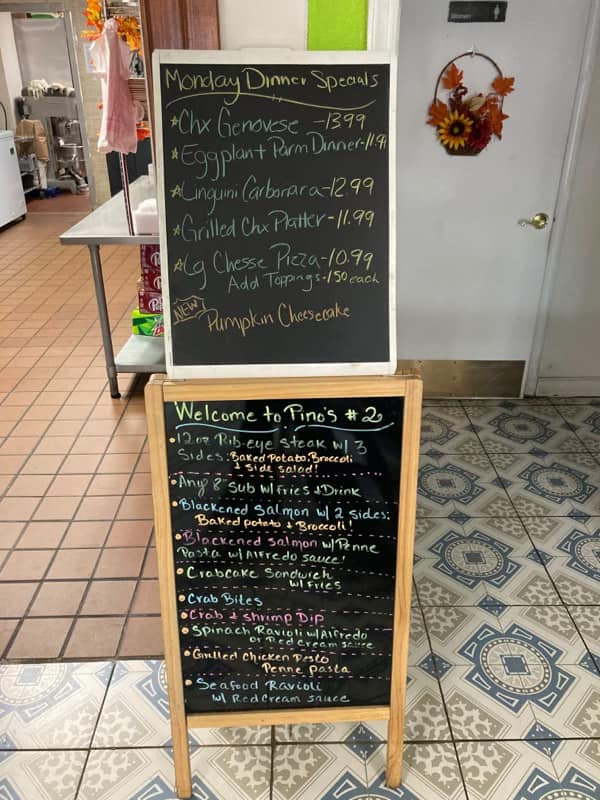 Women
Monday Dinner Specials
☆Chx Genovese - 13.99
☆Eggplant Parm Dinner-11.9
☆Linguini Carbonara-12.99
☆Grilled Chx Platter-11.99
☆Lg Chesse Pizza-10.99
Add Toppings-1.50 each
NEW
Pumpkin Cheesecake
Welcome to Pino's #2
• 12oz Rib-eye steak w/ 3
Sides: Baked Potato, Broccoli
+ side salad!
• Any 8" Sub w/ fries + Drink
• Blackened Salmon w/ 2 sides:
Baked potato + Broccoli!
• Blackened Salmon w/ Penne
Pasta w/ Alfredo sauce!
• Crabcake Sandwich
w/ Fries
• Crab Bites
• Crab + Shrimp Dip
• Spinach Ravioli w/ Alfredo
or Red Cream sauce
• Grilled Chicken Pesto
Penne pasta
• Seafood Ravioli
w/ Red Cream sauce